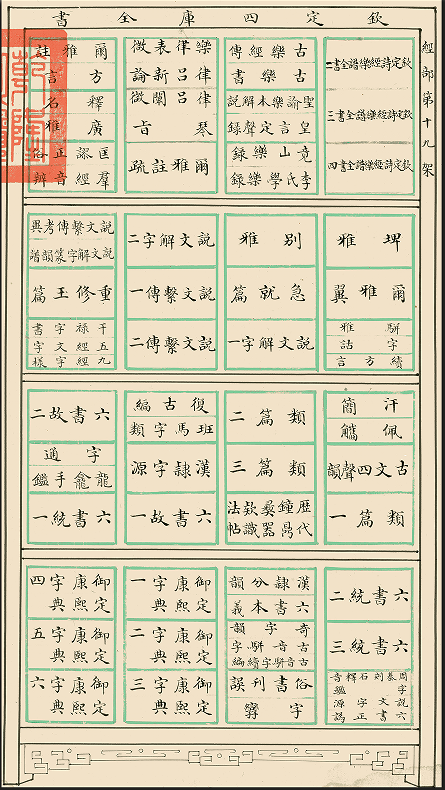 欽定四庫全書
經部第十九架
欽定詩經樂譜全書二
欽定詩經樂譜全書三
欽定詩經樂譜全書四
古樂經傳
古樂書
聖諭樂本解說
皇言定聲錄
竟山樂錄
李氏學樂錄
樂律表微
律呂新論
律呂闡微
琴旨
爾雅註疏
爾雅註
方言
釋名
廣雅
匡謬正俗
羣經音辨
埤雅
爾雅翼
駢雅
字詁
續方言
別雅
急就篇
說文解字一
說文解字二
說文繫傳一
說文繫傳二
說文繫傳考異
說文解字篆韻譜
重修玉篇
干祿字書
五經文字
九經字樣
汗簡
佩觿
古文四聲韻
類篇一
類篇二
類篇三
歷代鐘鼎彝器欵識法帖
復古編
班馬字類
漢隸字源
六書故一
六書故二
字通
龍龕手鑑
六書統一
六書統二
六書統三
漢隸分韻
六書本義
奇字韻
古音駢字
古音駢字續編
俗書刊誤
字孿
御定康熙字典一
御定康熙字典二
御定康熙字典三
御定康熙字典四
御定康熙字典五
御定康熙字典六